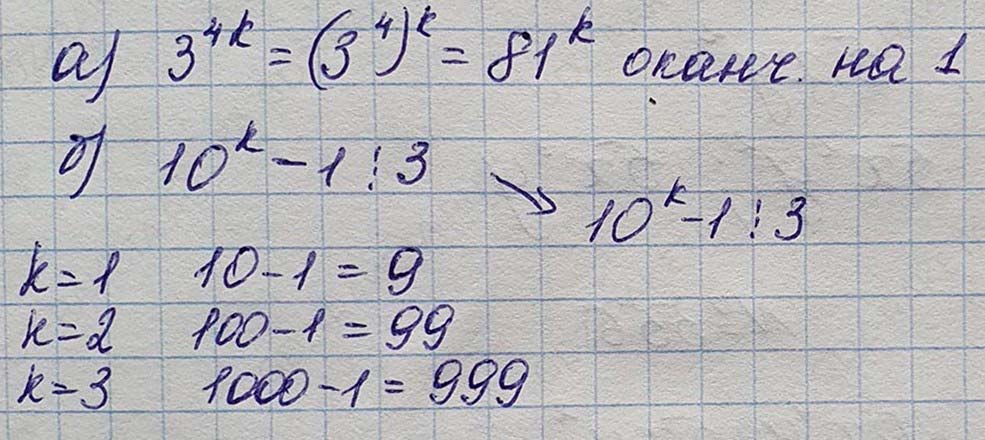 а) 3^{4k} = (3^4)^k = 81^k оканч. на 1
б) 10^k - 1 ⋮ 3 ↘ 10^k - 1 ⋮ 3
k = 1 10 - 1 = 9
k = 2 100 - 1 = 99
k = 3 1000 - 1 = 999